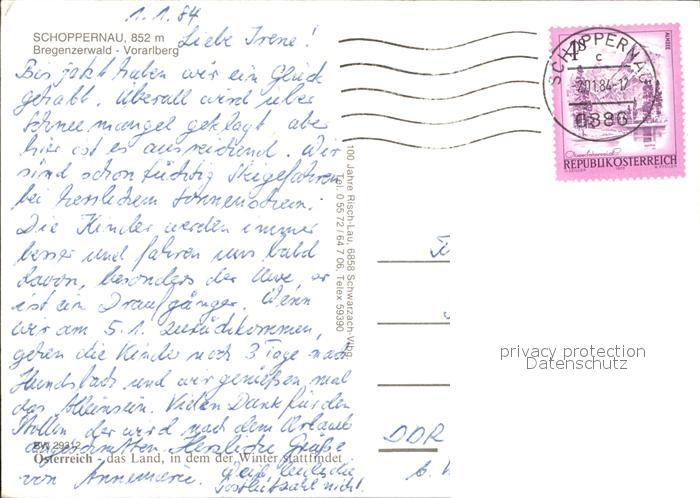 1.1.84
SCHOPPERNAU, 852 m
Bregenzerwald - Vorarlberg
Liebe Irene!
Bis jetzt haben wir ein Glück
gehabt. Überall wird über
Schneemangel geklagt, aber
hier ist es ausreichend. Wir
sind schon tüchtig Skigefahren
bei herrlichem Sonnenschein.
Die Kinder werden immer
besser und fahren uns bald
davon, besonders der Uwe, er
ist ein Draufgänger. Wenn
wir am 5.1. zurückkommen,
gehen die Kinder noch 3 Tage nach
und wir genießen mal
das Alleinsein. Vielen Dank für den
Stollen der wird nach dem Urlaub
angeschnitten. Herzliche Grüße
BW 29312
Österreich - das Land, in dem der Winter stattfindet
von Annemarie.
Postleitzahl nicht.
100 Jahre Risch-Lau, 6858 Schwarzach-Vlbg.
Tel. 0 55 72/64 7 06, Telex 59390
SCHOPPERNAU
c
-2.01.84-17
6886
4S
ALMSEE
REPUBLIK ÖSTERREICH
privacy protection
Datenschutz
DDR